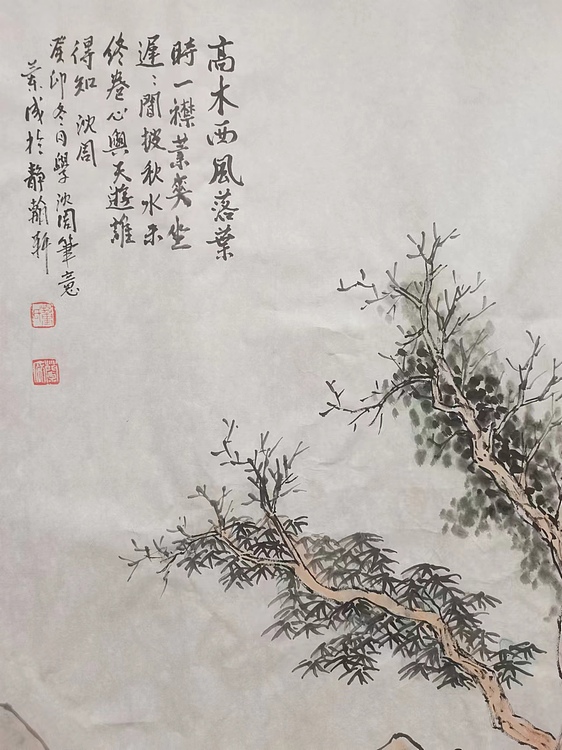 高木西風落葉
時一襟蕭爽坐
遲〻閒披秋水未
終卷心與天遊誰
得知 沈周
癸卯冬月學沈周筆意
成於靜瀚軒